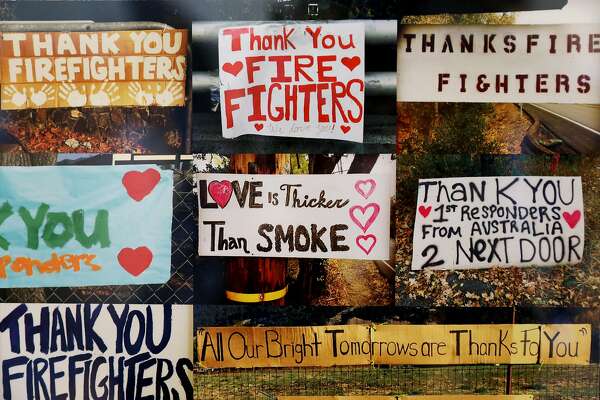 THANK YOU
FIREFIGHTERS
THANK YOU
FIRE
FIGHTERS
we love you!
THANKS FIRE
FIGHTERS
YOU
sponders
LOVE Is Thicker
Than SMOKE
THANK YOU
1ST RESPONDERS
FROM AUSTRALIA
2 NEXT DOOR
THANK YOU
FIREFIGHTERS
"All Our Bright Tomorrows are Thanks To You"